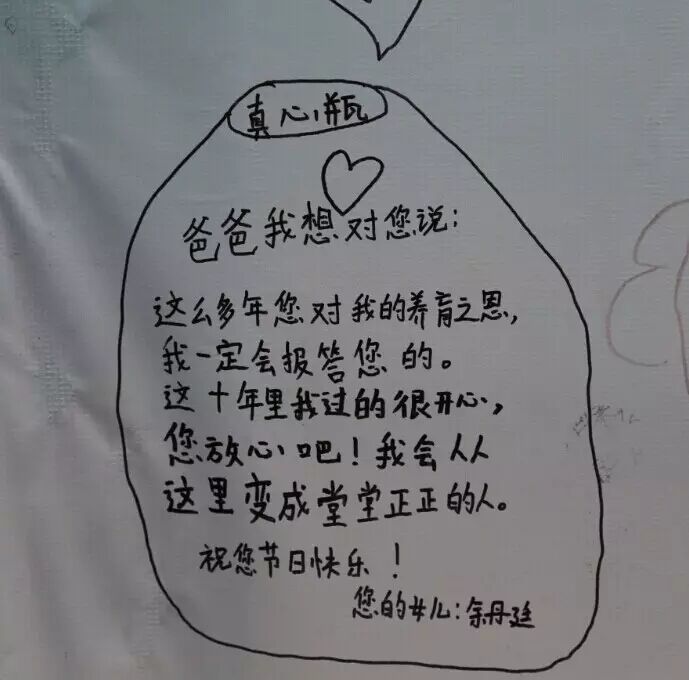 真心瓶
爸爸我想对您说：
这么多年您对我的养育之恩，
我一定会报答您的。
这十年里我过的很开心，
您放心吧！我会从
这里变成堂堂正正的人。
祝您节日快乐！
您的女儿：余丹廷